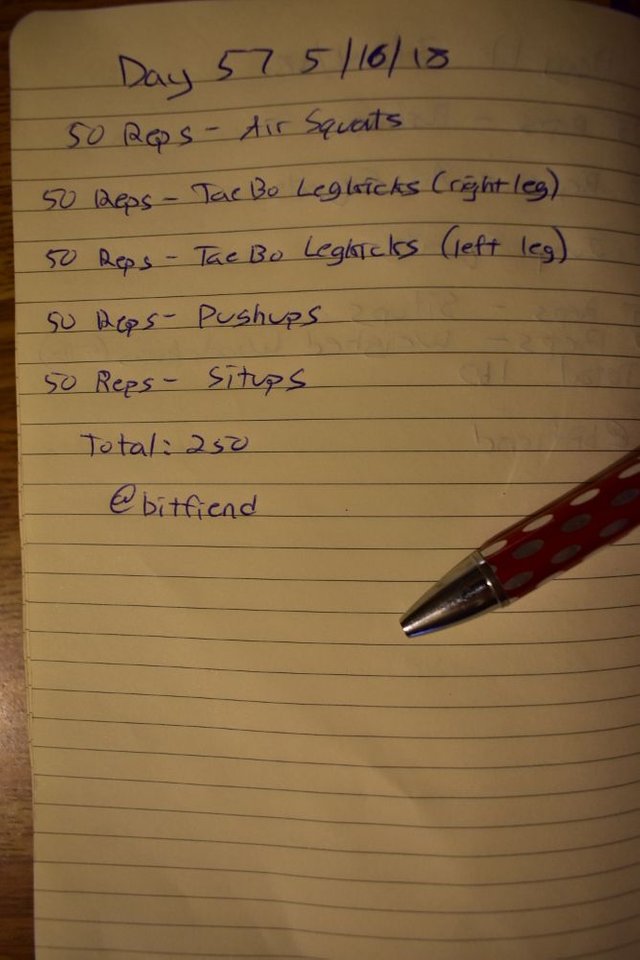 Day 57 5/16/18
50 Reps - Air Squats
50 Reps - TaeBo Legkicks (right leg)
50 Reps - TaeBo Legkicks (left leg)
50 Reps - Pushups
50 Reps - Situps
Total: 250
@bitfiend